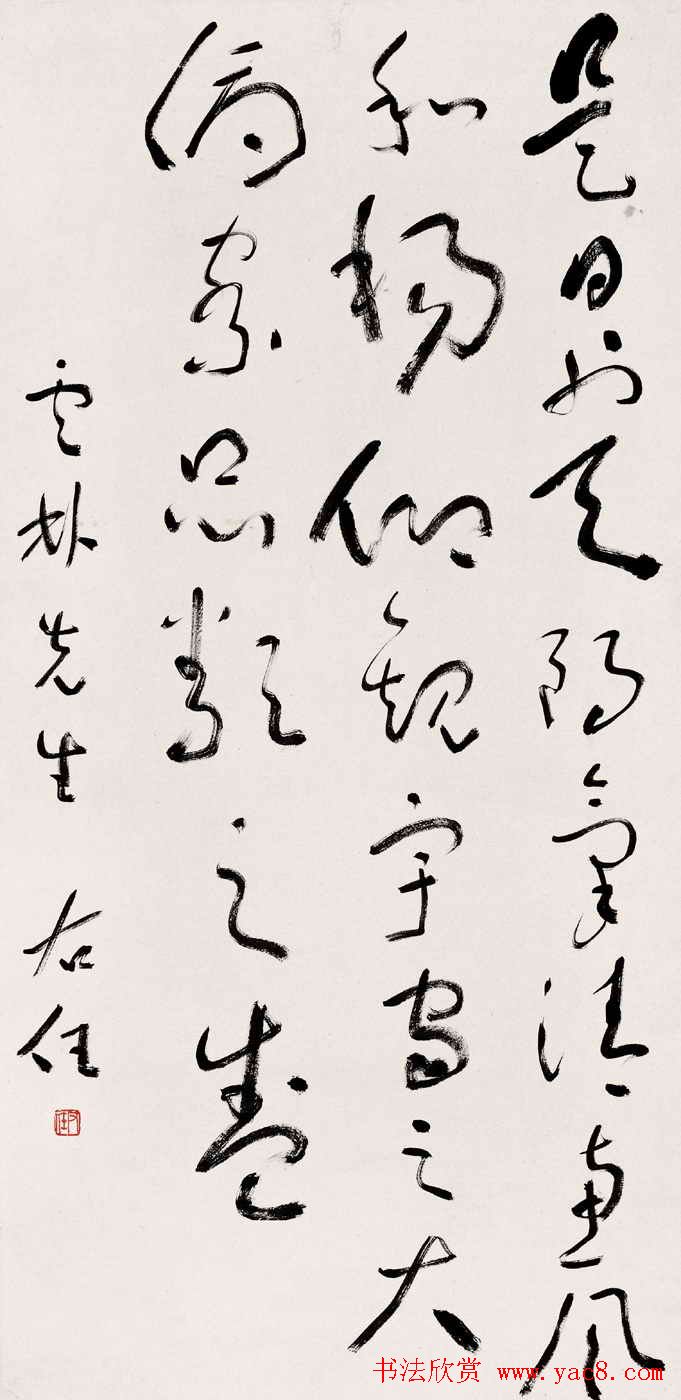 是日也天朗氣清惠風
和暢仰觀宇宙之大
俯察品類之盛
雲林先生 右任
右任
书法欣赏 www.yac8.com